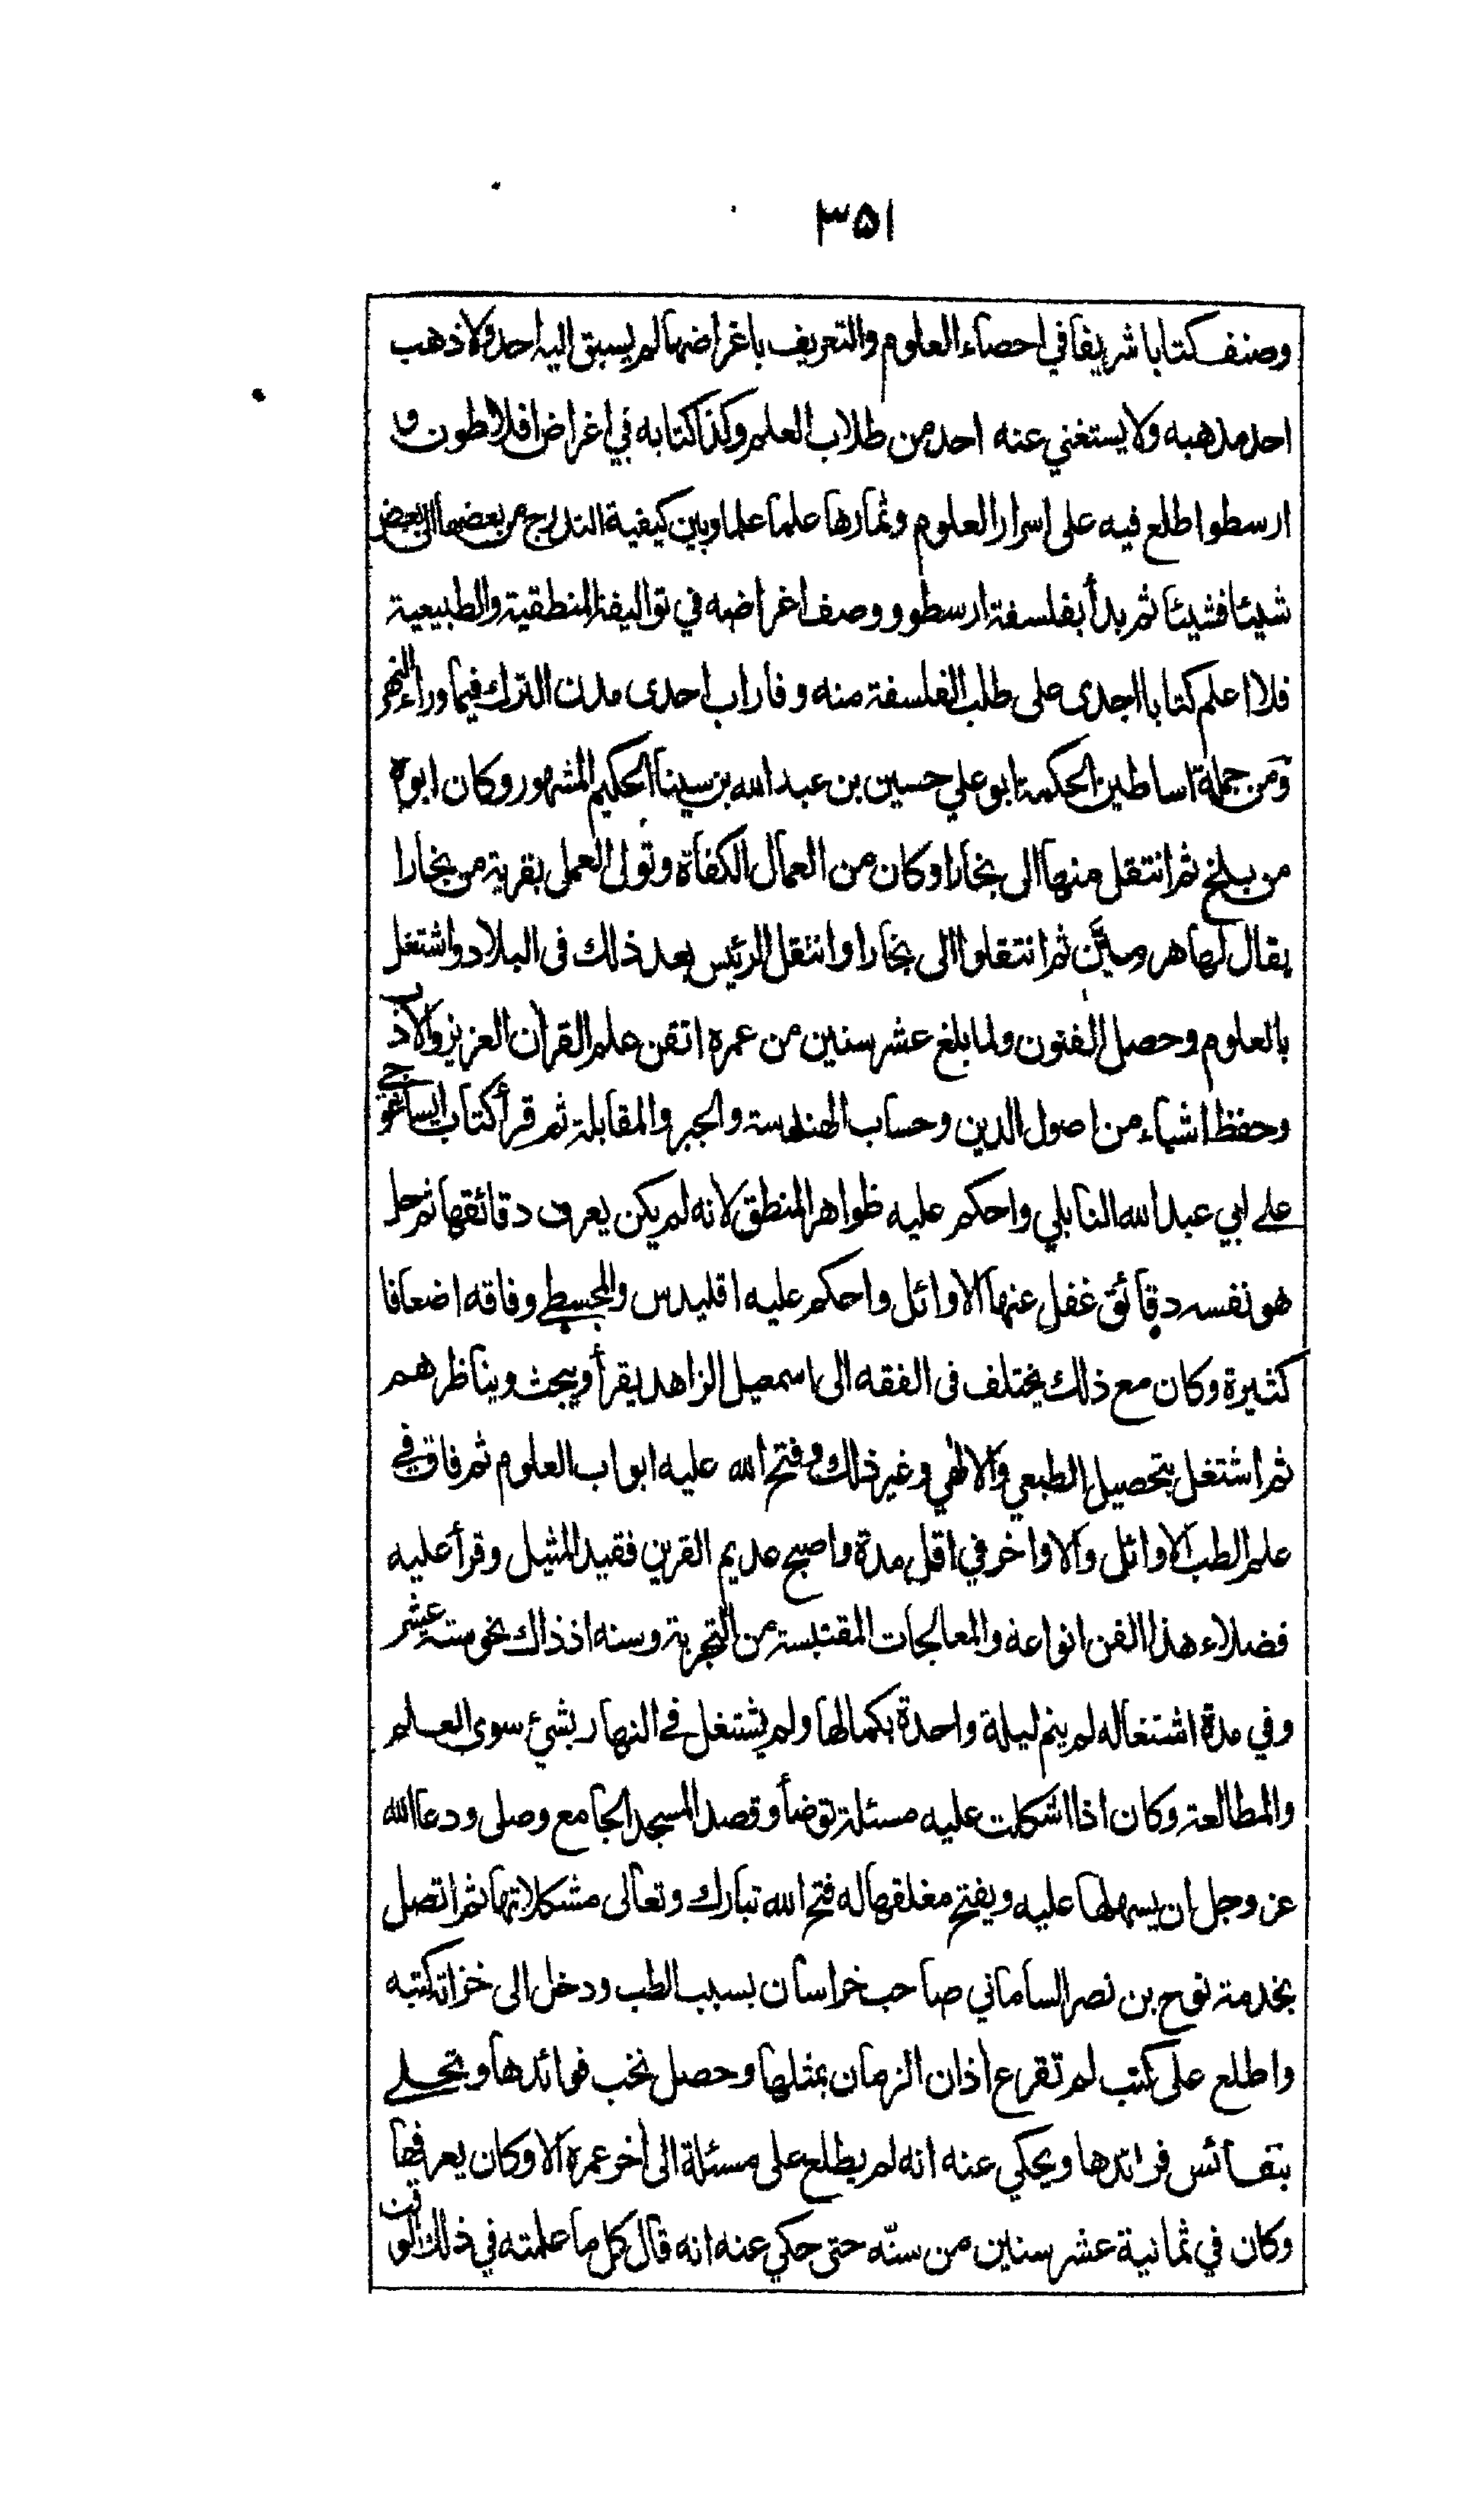 ٣٥١
وصنف كتابا شريفا في احصاء العلوم والتعريف باغراضها لم يسبق اليه احد ولا ذهب
احد مذهبه ولا يستغني عنه احد من طلاب العلم وكذا كتابه في اغراض افلاطون و
ارسطو اطلع فيه على اسرار العلوم وثمارها علما علما وبين كيفية التدرج من بعضها الى بعض
شيئا فشيئا ثم بدأ بفلسفة ارسطو ووصف اغراضه في تواليفه المنطقية والطبيعية
فلا اعلم كتابا اجدى على طلب الفلسفة منه وفاراب احدى مدن الترك فيما وراء النهر
ومن جملة اساطين الحكمة ابو علي حسين بن عبد الله بن سينا الحكيم المشهور وكان ابوه
من بلخ ثم انتقل منها الى بخارا وكان من العمال الكفاة وتولى العمل بقرية من بخارا
يقال لها هرميثن ثم انتقلوا الى بخارا وانتقل الرئيس بعد ذلك في البلاد واشتغل
بالعلوم وحصل الفنون ولما بلغ عشر سنين من عمره اتقن علم القرآن العزيز والادب
وحفظ اشياء من اصول الدين وحساب الهندسة والجبر والمقابلة ثم قرأ كتاب ايساغوجي
على ابي عبد الله النابلي واحكم عليه ظواهر المنطق لانه لم يكن يعرف دقائقها ثم حل
هو نفسه دقائق غفل عنها الاوائل واحكم عليه اقليدس والمجسطي وفاقه اضعافا
كثيرة وكان مع ذلك يختلف في الفقه الى اسمعيل الزاهد يقرأ ويبحث ويناظرهم
ثم اشتغل بتحصيل الطبعي والالهي وغير ذلك وفتح الله عليه ابواب العلوم ثم فاق في
علم الطب الاوائل والاواخر في اقل مدة واصبح عديم القرين فقيد المثيل وقرأ عليه
فضلاء هذا الفن انواعه والمعالجات المقتبسة من التجربة وسنه اذ ذاك نحو ستة عشر
وفي مدة اشتغاله لم ينم ليلة واحدة بكمالها ولم يشتغل في النهار بشئ سوى العلم
والمطالعة وكان اذا اشكلت عليه مسئلة توضأ وقصد المسجد الجامع وصلى ودعا الله
عز وجل ان يسهلها عليه ويفتح مغلقها له فتح الله تبارك وتعالى مشكلاتها ثم اتصل
بخدمة نوح بن نصر الساماني صاحب خراسان بسبب الطب ودخل الى خزانة كتبه
واطلع على كتب لم تقرع اذان الزمان بمثلها وحصل نخب فوائدها وتحلى
بنفائس فرائدها ويحكي عنه انه لم يطلع على مسئلة الى آخر عمره الا وكان يعرفها
وكان في ثمانية عشر سنين من سنّه حتى حكي عنه انه قال كل ما علمته في ذلك الوقت